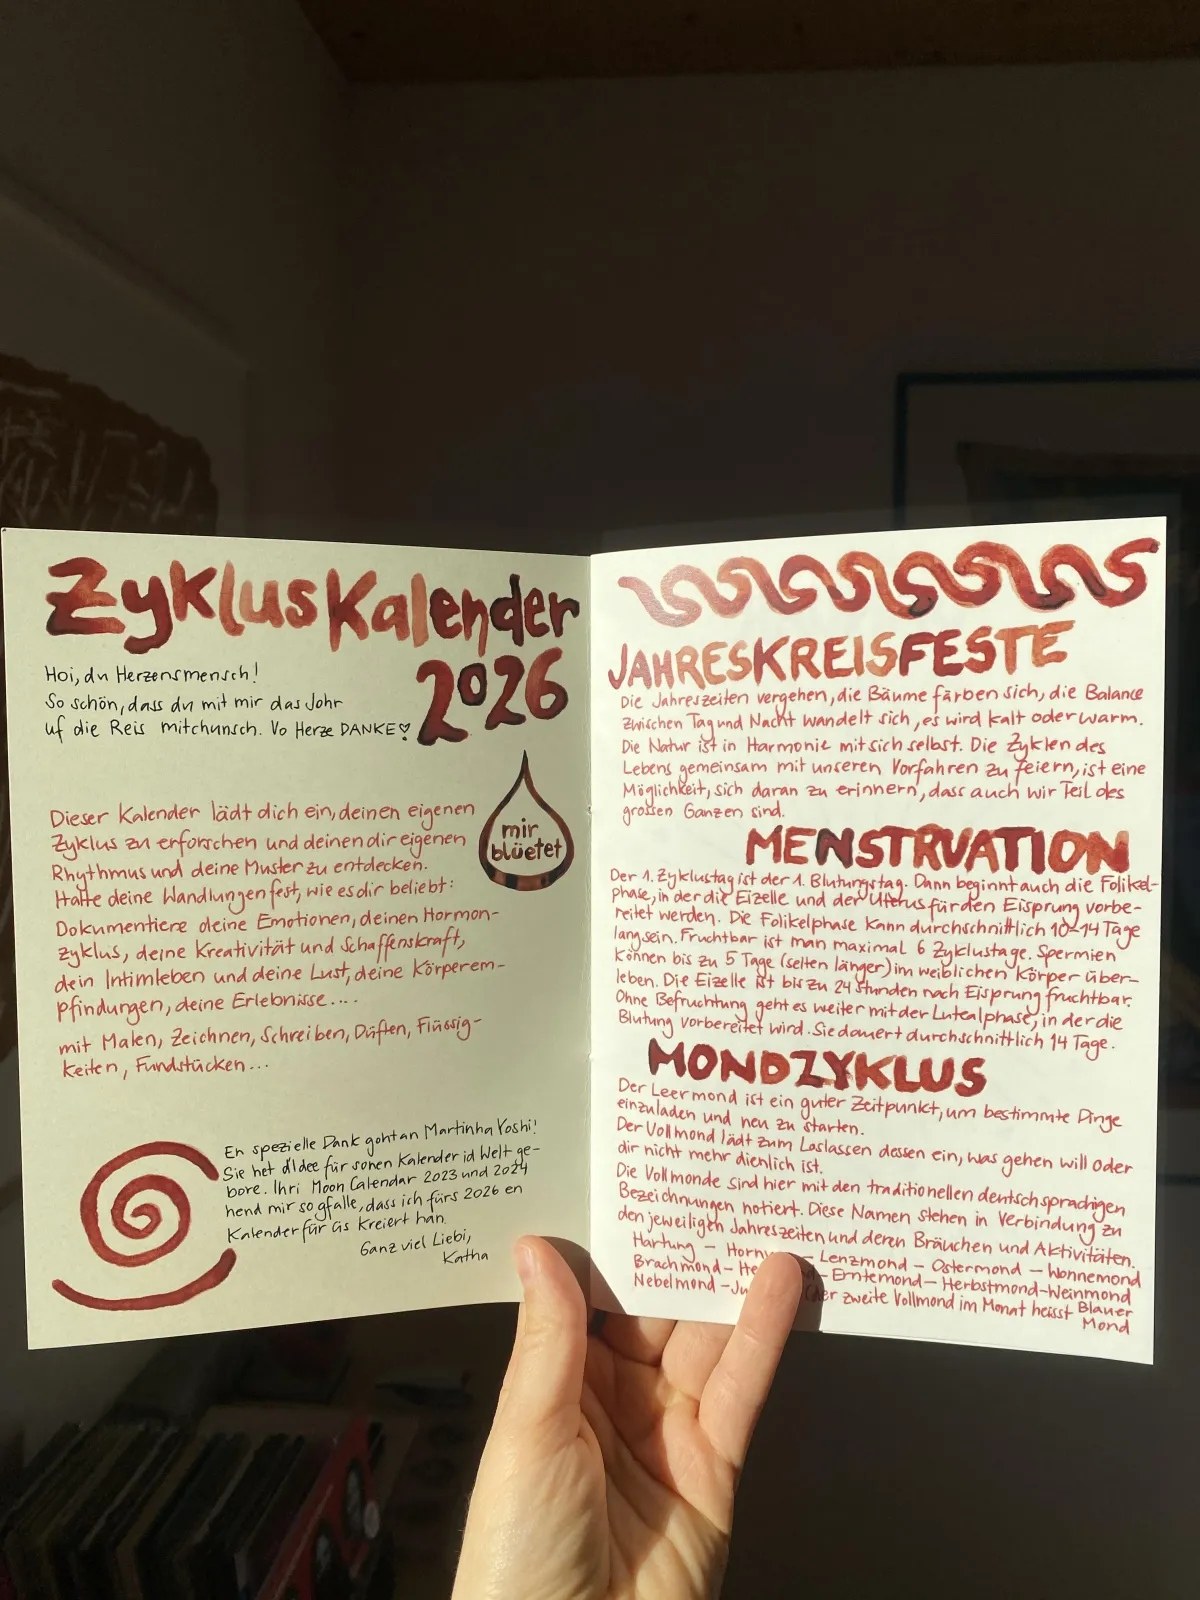 ZyklusKalender
2026
Hoi, du Herzensmensch!
So schön, dass du mit mir das Johr
uf die Reis mitchunsch. Vo Herze DANKE♡
mir
blüetet
Dieser Kalender lädt dich ein, deinen eigenen
Zyklus zu erforschen und deinen dir eigenen
Rhythmus und deine Muster zu entdecken.
Halte deine Wandlungen fest, wie es dir beliebt:
Dokumentiere deine Emotionen, deinen Hormon-
zyklus, deine Kreativität und Schaffenskraft,
dein Intimleben und deine Lust, deine Körperem-
pfindungen, deine Erlebnisse....
mit Malen, Zeichnen, Schreiben, Düften, Flüssig-
keiten, Fundstücken...
En spezielle Dank goht an Martinha Yoshi!
Sie het d'Idee für sonen Kalender id Welt ge-
bore. Ihri Moon Calendar 2023 und 2024
hend mir so gfalle, dass ich fürs 2026 en
Kalender für üs kreiert han.
Ganz viel Liebi,
Katha
JAHRESKREISFESTE
Die Jahreszeiten vergehen, die Bäume färben sich, die Balance
zwischen Tag und Nacht wandelt sich, es wird kalt oder warm.
Die Natur ist in Harmonie mit sich selbst. Die Zyklen des
Lebens gemeinsam mit unseren Vorfahren zu feiern, ist eine
Möglichkeit, sich daran zu erinnern, dass auch wir Teil des
grossen Ganzen sind.
MENSTRUATION
Der 1. Zyklustag ist der 1. Blutungstag. Dann beginnt auch die Folikel-
phase, in der die Eizelle und der Uterus für den Eisprung vorbe-
reitet werden. Die Folikelphase kann durchschnittlich 10-14 Tage
lang sein. Fruchtbar ist man maximal 6 Zyklustage. Spermien
können bis zu 5 Tage (selten länger) im weiblichen Körper über-
leben. Die Eizelle ist bis zu 24 Stunden nach Eisprung fruchtbar.
Ohne Befruchtung geht es weiter mit der Lutealphase, in der die
Blutung vorbereitet wird. Sie dauert durchschnittlich 14 Tage.
MONDZYKLUS
Der Leermond ist ein guter Zeitpunkt, um bestimmte Dinge
einzuladen und neu zu starten.
Der Vollmond lädt zum Loslassen dessen ein, was gehen will oder
dir nicht mehr dienlich ist.
Die Vollmonde sind hier mit den traditionellen deutschsprachigen
Bezeichnungen notiert. Diese Namen stehen in Verbindung zu
den jeweiligen Jahreszeiten und deren Bräuchen und Aktivitäten.
Hartung – – Lenzmond – Ostermond – Wonnemond
Brachmond – – Erntemond – Herbstmond – Weinmond
Nebelmond – der zweite Vollmond im Monat heisst Blauer
Mond